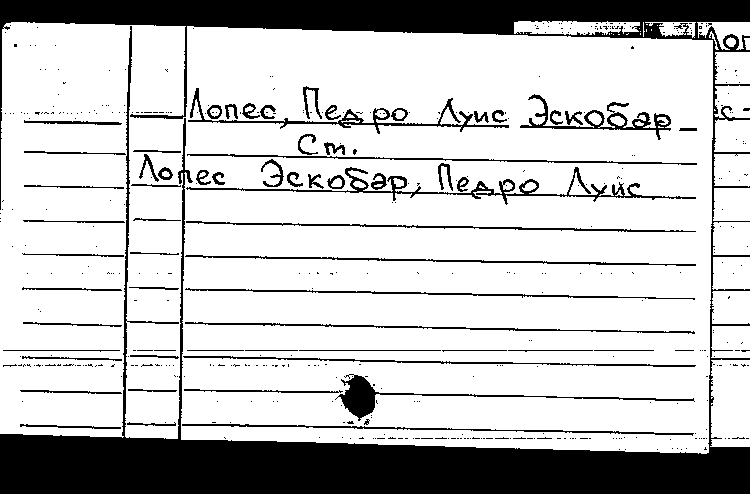 Лопес, Педро Луис Эскобар
Ст.
Лопес Эскобар, Педро Луис